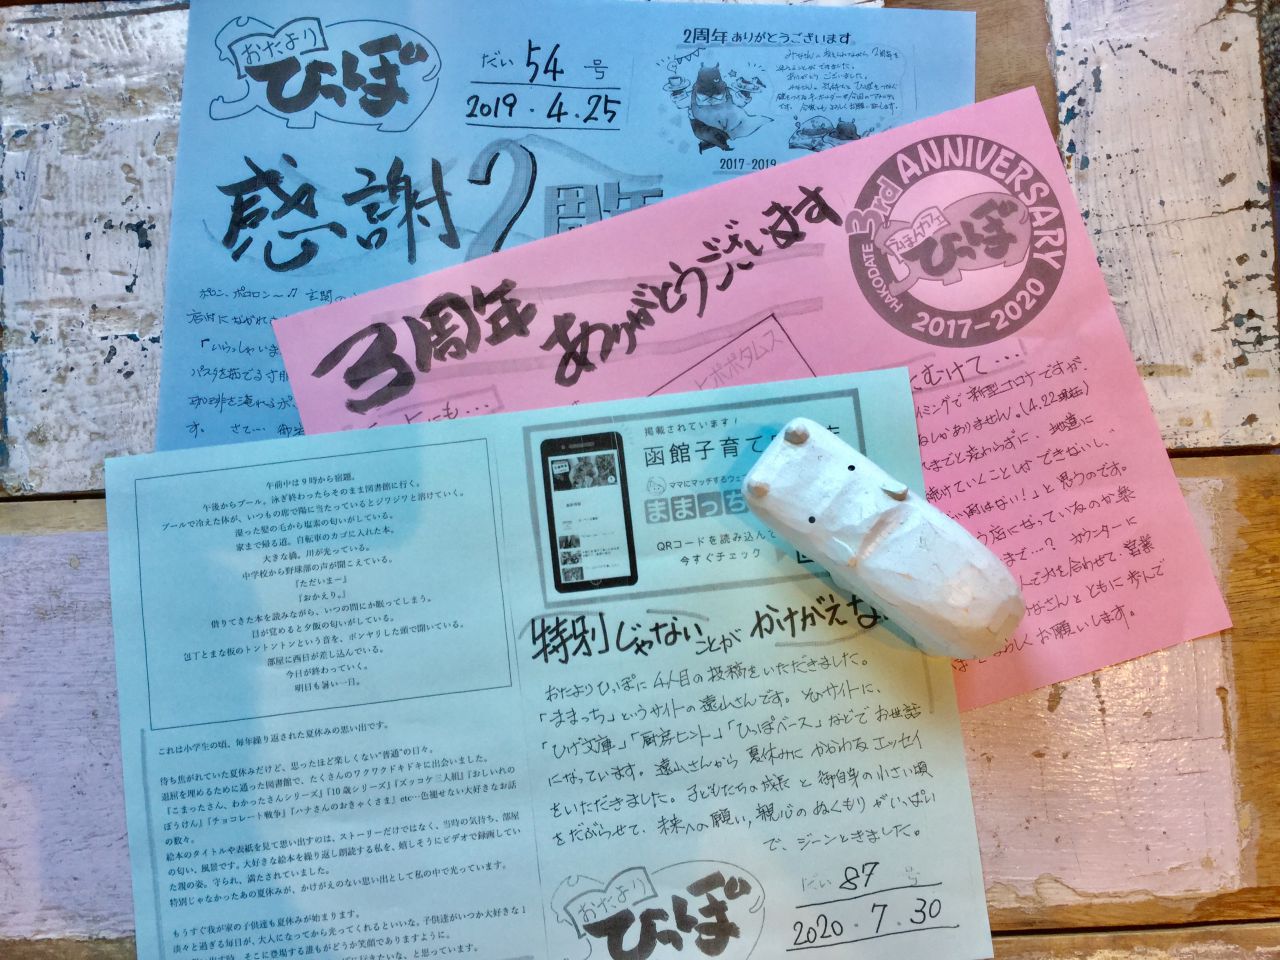 おたより
ひっぽ
だい 54 号
2019.4.25
2周年ありがとうございます。
2017-2019
感謝2周年
ポロン、ポロロン〜♫ 玄関の
「いらっしゃいま
3周年
ありがとうございます
3rd ANNIVERSARY
HAKODATE
えほんカフェ
ひっぽ
2017-2020
ヒポポタムス
にも...
むけて...
イミングで新型コロナですが、
しかありません。(4.22現在)
までと変わらずに、地道に
続けていくことしかできないし、
」と思うのです。
う店になっているのか楽
まで…? カウンターに
ともに歩んで
ろしくお願いします。
午前中は9時から宿題。
午後からプール。泳ぎ終わったらそのまま図書館に行く。
プールで冷えた体が、いつもの席で陽に当たっているとジワジワと溶けていく。
湿った髪の毛から塩素の匂いがしている。
家まで帰る道。自転車のカゴに入れた本。
大きな橋。川が光っている。
中学校から野球部の声が聞こえている。
『ただいまー』
『おかえり。』
借りてきた本を読みながら、いつの間にか眠ってしまう。
目が覚めると夕飯の匂いがしている。
包丁とまな板のトントントンという音を、ボンヤリした頭で聞いている。
部屋に西日が差し込んでいる。
今日が終わっていく。
明日も暑い一日。
これは小学生の頃、毎年繰り返された夏休みの思い出です。
待ち焦がれていた夏休みだけど、思ったほど楽しくない“普通”の日々。
退屈を埋めるために通った図書館で、たくさんのワクワクドキドキに出会いました。
『こまったさん、わかったさんシリーズ』『10歳シリーズ』『ズッコケ三人組』『おしいれの
ぼうけん』『チョコレート戦争』『ハナさんのおきゃくさま』etc…色褪せない大好きなお話
の数々。
絵本のタイトルや表紙を見て思い出すのは、ストーリーだけではなく、当時の気持ち、部屋
の匂い、風景です。大好きな絵本を繰り返し朗読する私を、嬉しそうにビデオで録画してい
た親の姿。守られ、満たされていました。
特別じゃなかったあの夏休みが、かけがえのない思い出として私の中で光っています。
もうすぐ我が家の子供達も夏休みが始まります。
淡々と過ぎる毎日が、大人になってから光ってくれるといいな。子供達がいつか大好きな1
そこに登場する誰もがどうか笑顔でありますように。
に行きたいな、と思っています。
掲載されています!
函館子育て
ママにマッチするウェ
ままっち
QRコードを読み込んで
今すぐチェック
特別じゃないことが かけがえな
おたよりひっぽに4人目の投稿をいただきました。
「ままっち」というサイトの遠山さんです。そのサイトに、
「ひげ文庫」「厨房ヒント」「ひっぽベース」などでお世話
になっています。遠山さんから夏休みにかかわるエッセイ
をいただきました。子どもたちの成長と御自身の小さい頃
をだぶらせて、未来への願い、親心のぬくもりがいっぱい
で、ジーンときました。
おたより
ひっぽ
だい 87 号
2020.7.30